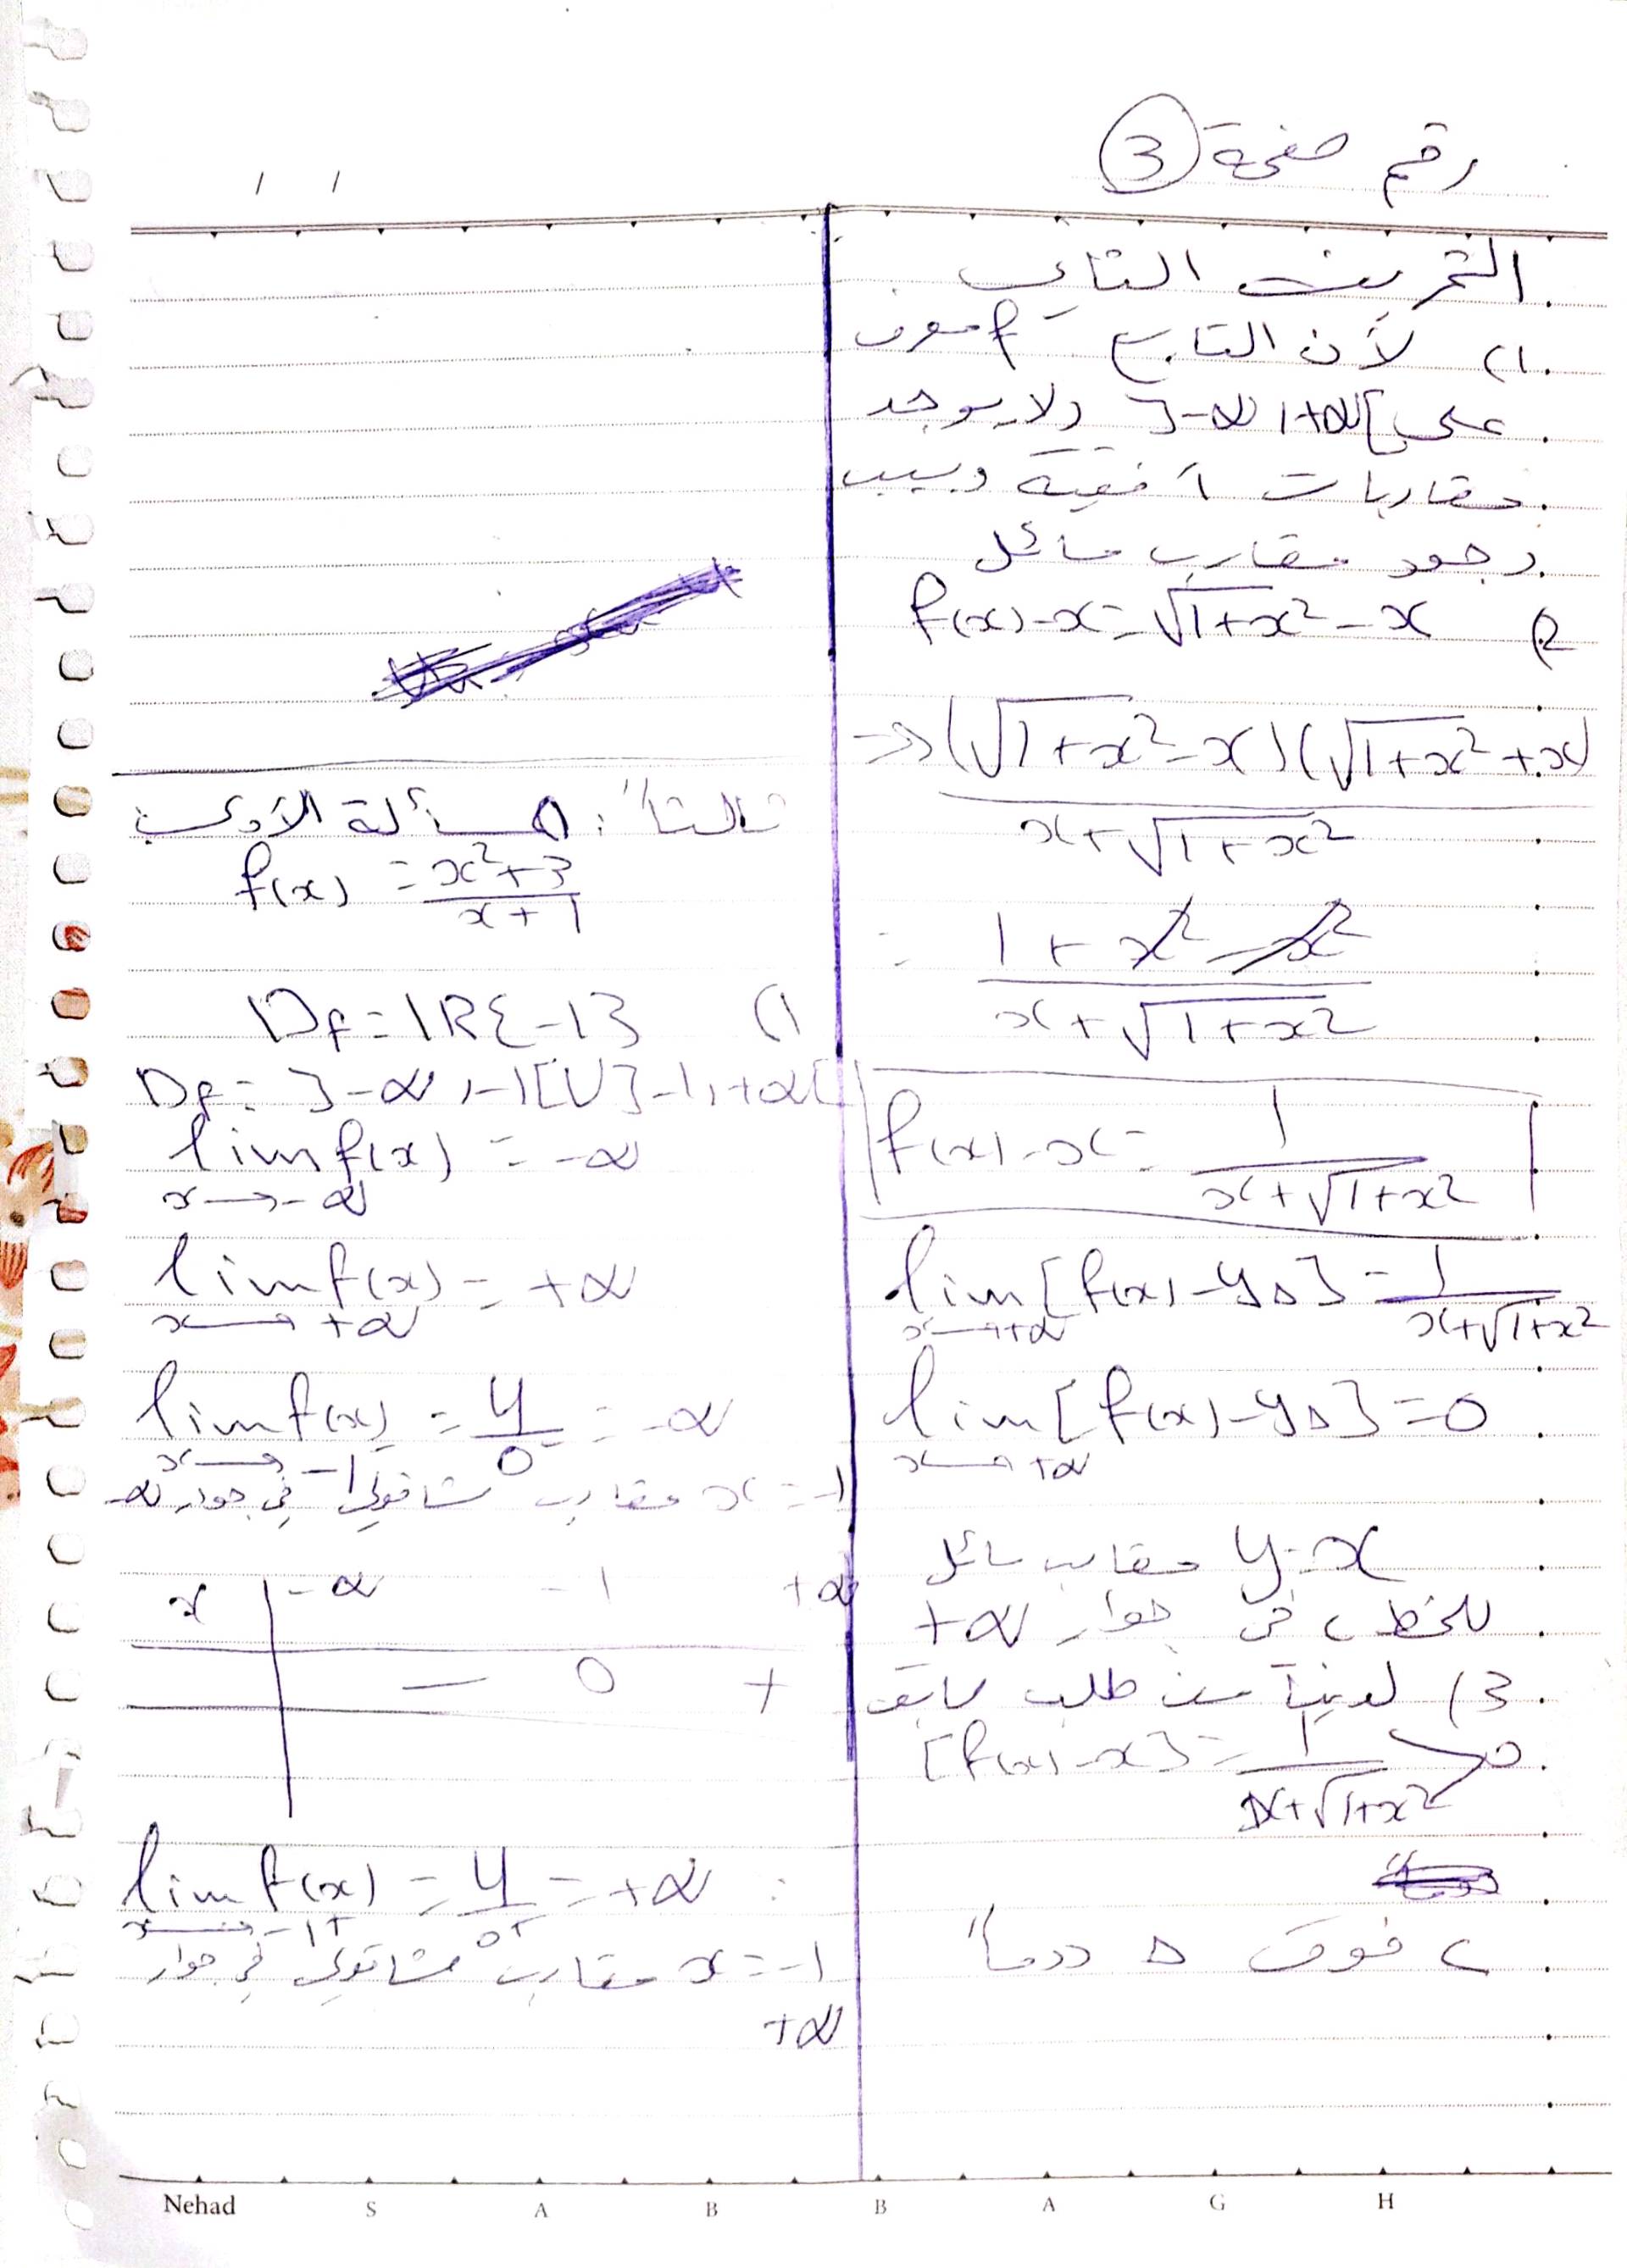 رقم صفحة 3
التمرين الثاني
1) لأن التابع f معرف
على ]-∞,+∞[ ولا يوجد
مقاربات أفقية وبسبب
وجود مقارب مائل
2) f(x)-x=√1+x² - x
=> (√1+x² - x)(√1+x² + x)
x+√1+x²
= 1+x²-x²
x+√1+x²
f(x)-x= 1
x+√1+x²
lim [f(x)-yΔ] = 1
x→+∞ x+√1+x²
lim [f(x)-yΔ] = 0
x→+∞
y=x مقارب مائل
للخط c في جوار +∞
3) لدينا من طلب سابق
[f(x)-x] = 1 >0
x+√1+x²
c فوق Δ دوماً
ثالثاً: المسألة الأولى
f(x) = x²+3
x+1
1) Df=IR{-1}
Df= ]-∞,-1[U]-1,+∞[
lim f(x) = -∞
x→-∞
lim f(x) = +∞
x→+∞
lim f(x) = 4 = -∞
x→-1⁻ 0⁻
x=-1 مقارب شاقولي في جوار -∞
x -∞ -1 +∞
- 0 +
lim f(x) = 4 = +∞
x→-1+ 0+
x=-1 مقارب شاقولي في جوار
+∞
Nehad S A B B A G H